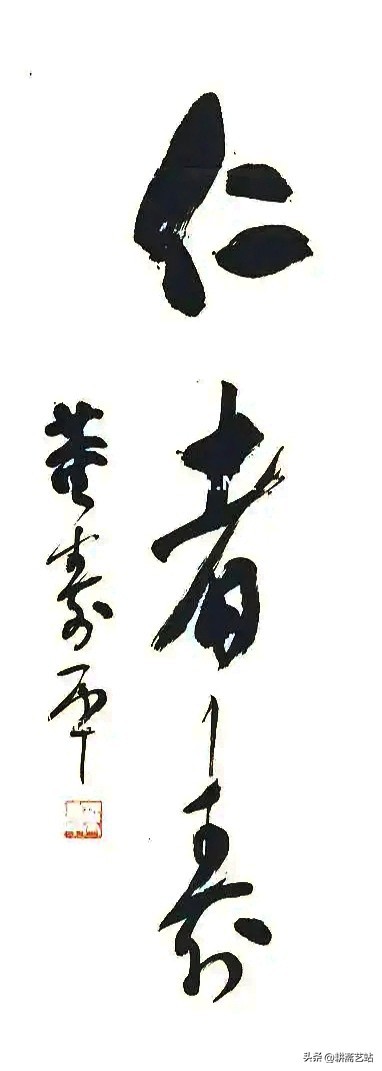 仁者寿
董寿平
头条 @耕斋艺站